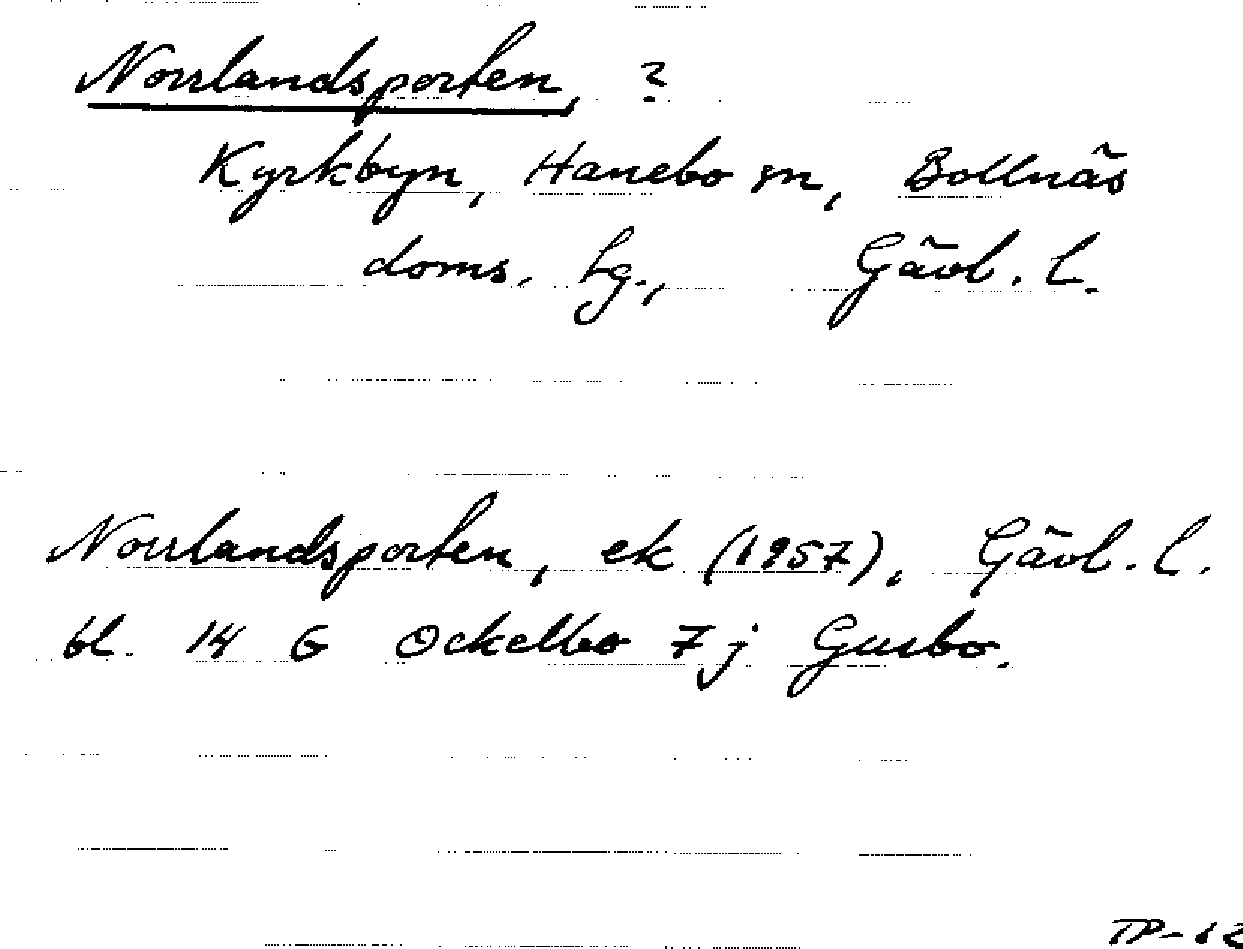 Norrlandsporten, ?
Kyrkbyn, Hanebo sn, Bollnäs
doms. lg., Gävl. l.
Norrlandsporten, ek (1957), Gävl. l.
bl. 14 G Ockelbo 7 j Gusbo.
TP-62